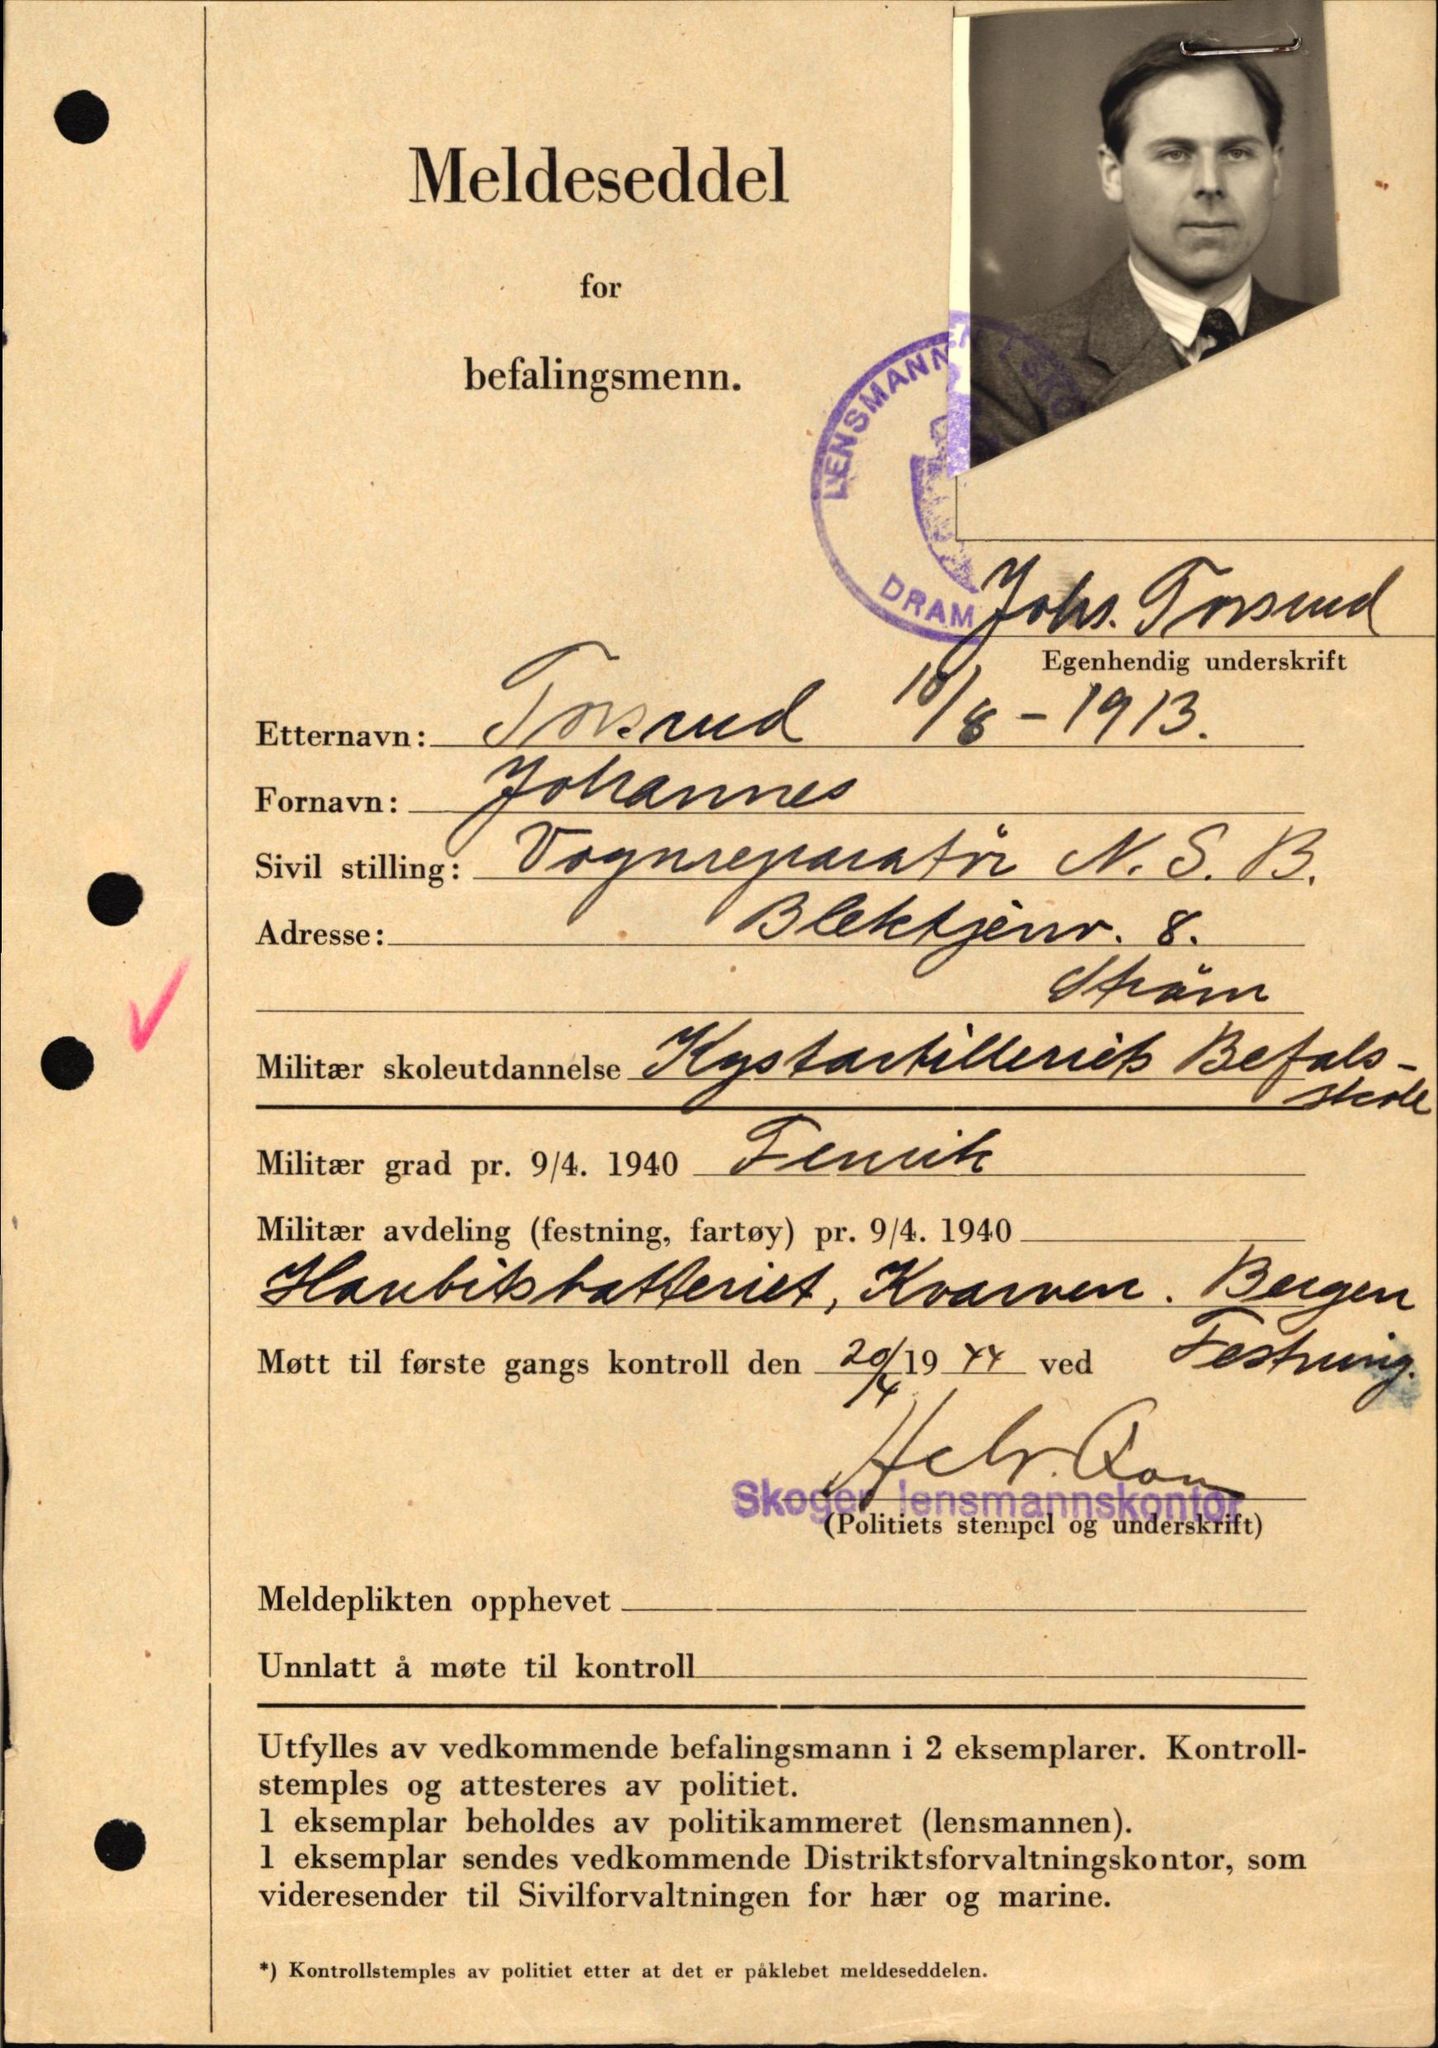 Meldeseddel
for
befalingsmenn.
LENSMANNEN I SKO
DRAM
Johs. Torsrud
Egenhendig underskrift
Etternavn: Torsrud 10/8 - 1913.
Fornavn: Johannes
Sivil stilling: Vognreparatör N. S. B.
Adresse: Blektjernv. 8.
Strøm
Militær skoleutdannelse Kystartilleriets Befals-
skole
Militær grad pr. 9/4. 1940 Fenrik
Militær avdeling (festning, fartøy) pr. 9/4. 1940
Haubitsbatteriet, Kvarven. Bergen
Møtt til første gangs kontroll den 20/4 19 44 ved Festning.
Skoger lensmannskontor
(Politiets stempel og underskrift)
Meldeplikten opphevet
Unnlatt å møte til kontroll
Utfylles av vedkommende befalingsmann i 2 eksemplarer. Kontroll-
stemples og attesteres av politiet.
1 eksemplar beholdes av politikammeret (lensmannen).
1 eksemplar sendes vedkommende Distriktsforvaltningskontor, som
videresender til Sivilforvaltningen for hær og marine.
*) Kontrollstemples av politiet etter at det er påklebet meldeseddelen.